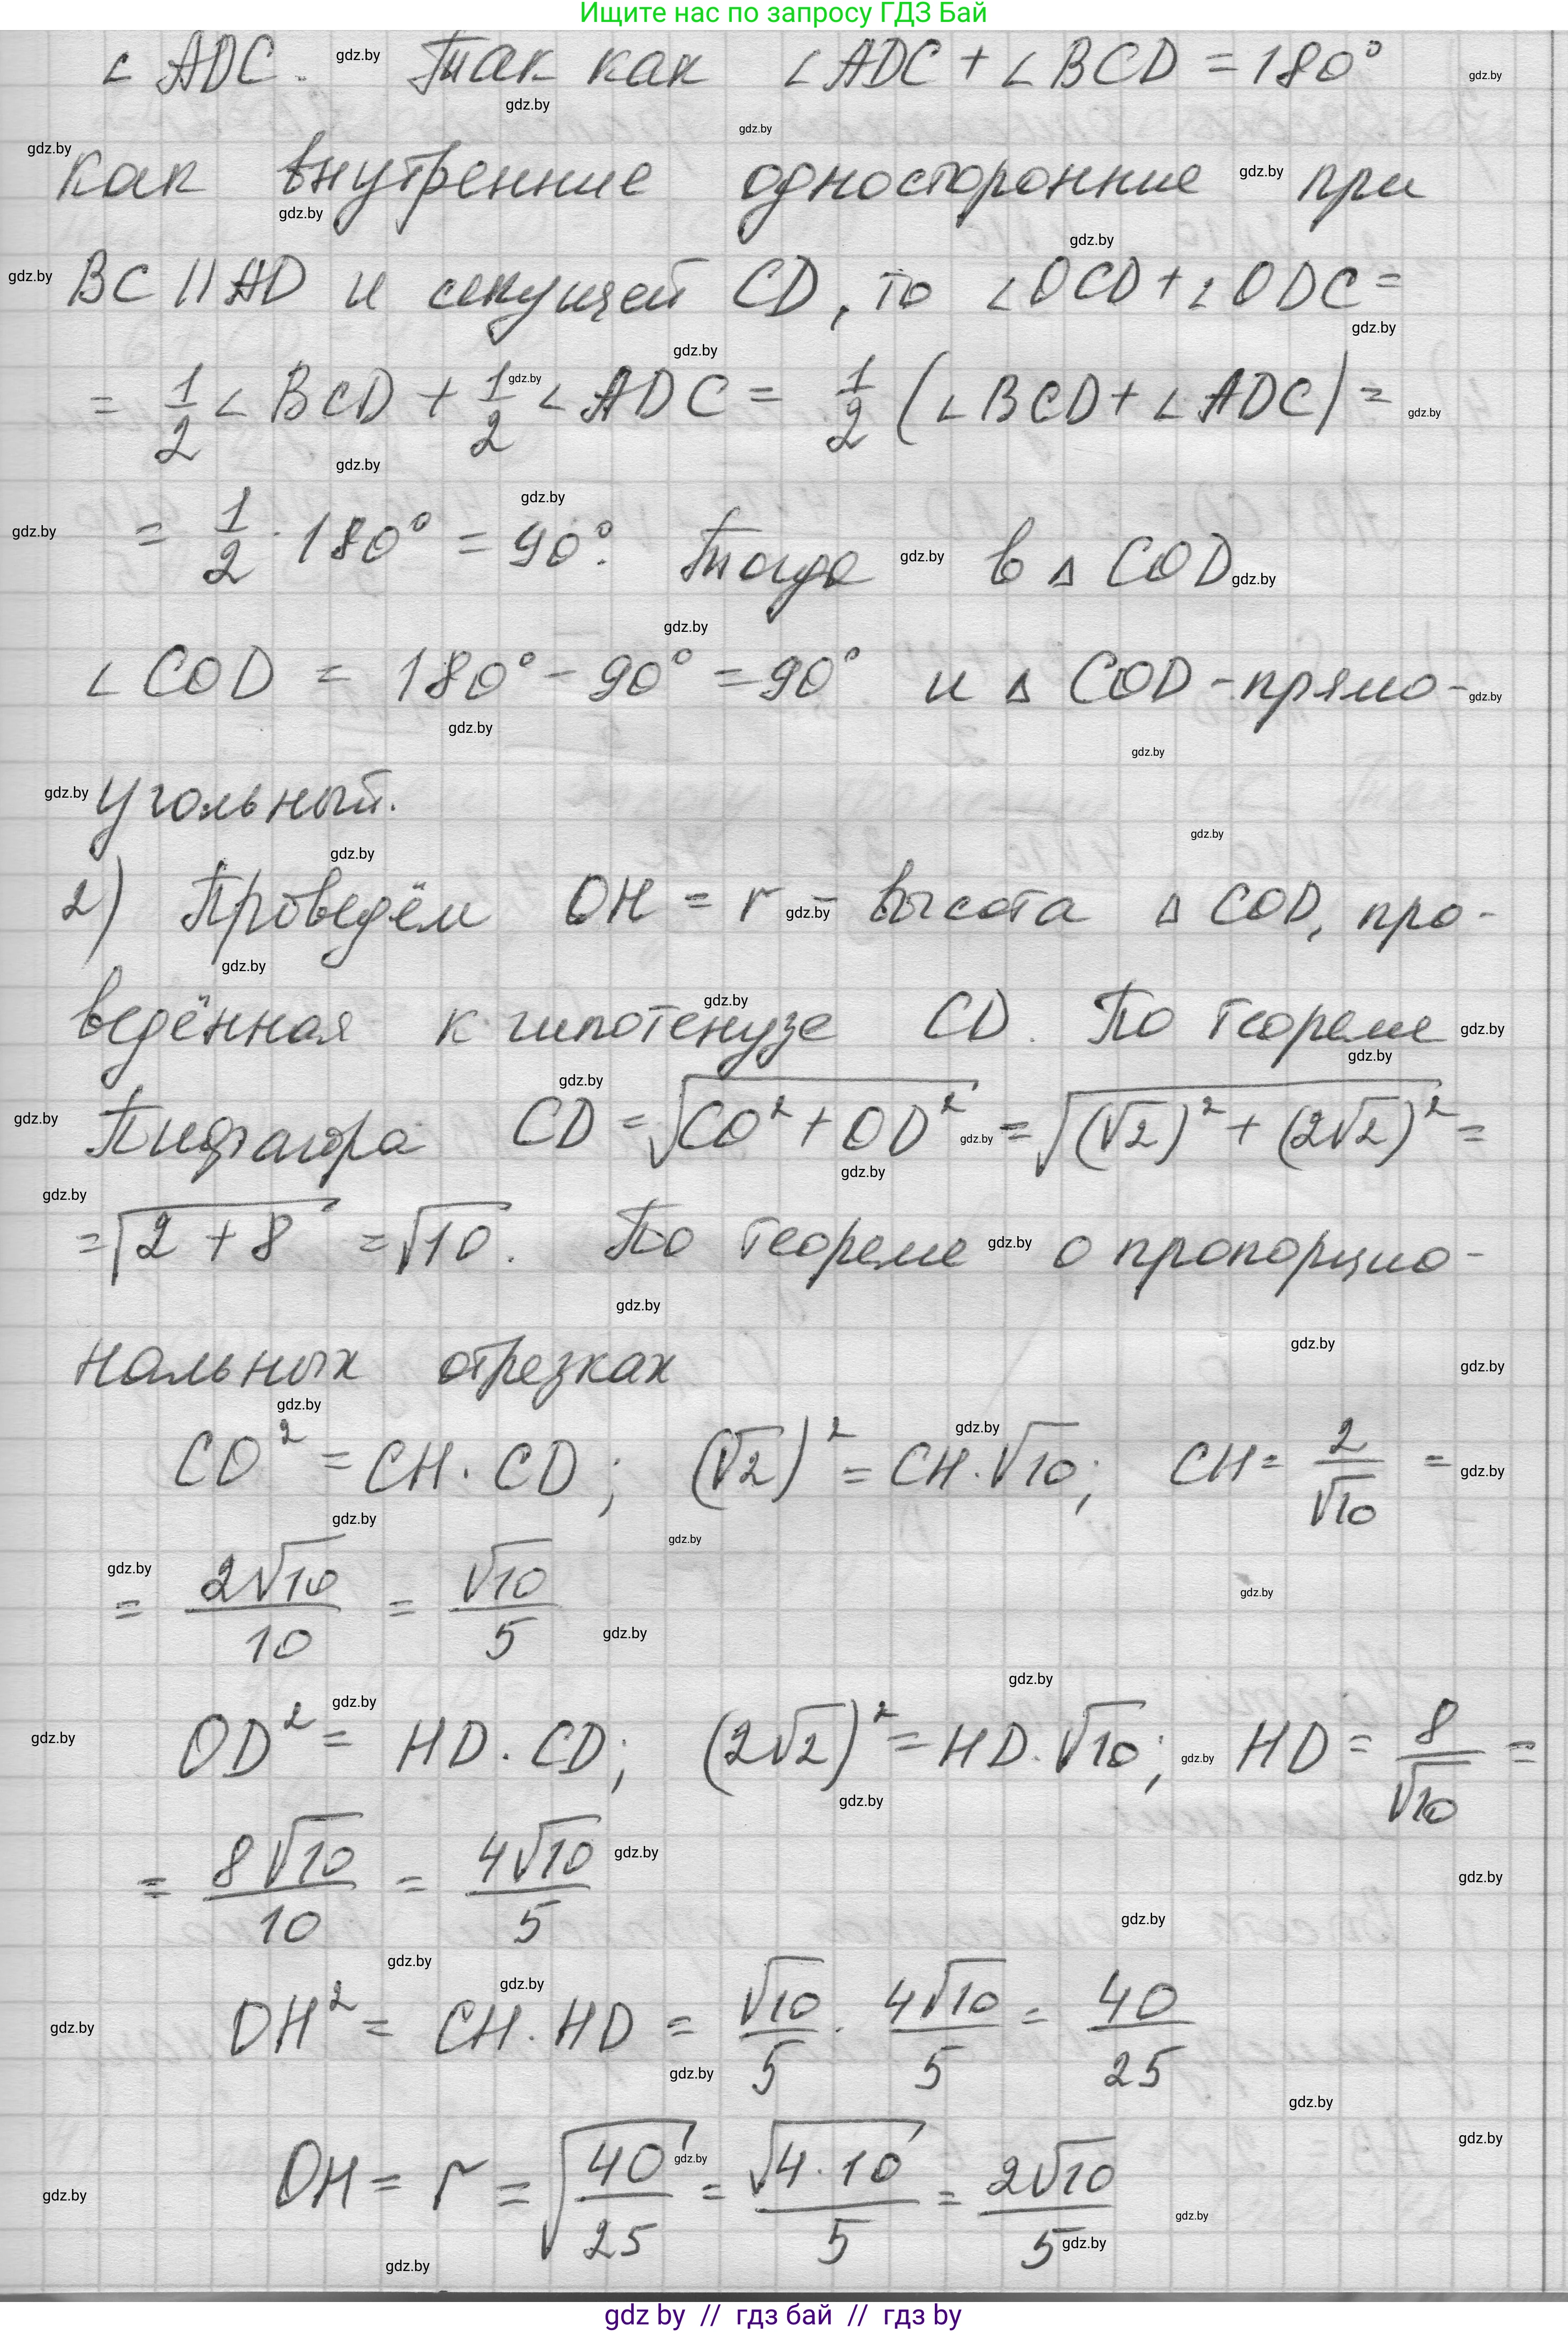 Ищите нас по запросу ГДЗ Бай
∠ADC. Так как ∠ADC + ∠BCD = 180°
как внутренние односторонние при
BC || AD и секущей CD, то ∠OCD + ∠ODC =
= 1/2 ∠BCD + 1/2 ∠ADC = 1/2 (∠BCD + ∠ADC) =
= 1/2 · 180° = 90°. Тогда в △COD
∠COD = 180° - 90° = 90° и △COD - прямо-
угольный.
2) Проведём OH = r - высота △COD, про-
ведённая к гипотенузе CD. По теореме
Пифагора CD = √(CO² + OD²) = √((√2)² + (2√2)²) =
= √(2 + 8) = √10. По теореме о пропорцио-
нальных отрезках
CO² = CH · CD; (√2)² = CH · √10; CH = 2/√10 =
= 2√10/10 = √10/5
OD² = HD · CD; (2√2)² = HD · √10; HD = 8/√10 =
= 8√10/10 = 4√10/5
OH² = CH · HD = √10/5 · 4√10/5 = 40/25
OH = r = √(40/25) = √(4 · 10)/5 = 2√10/5
gdz by // гдз бай // гдз by